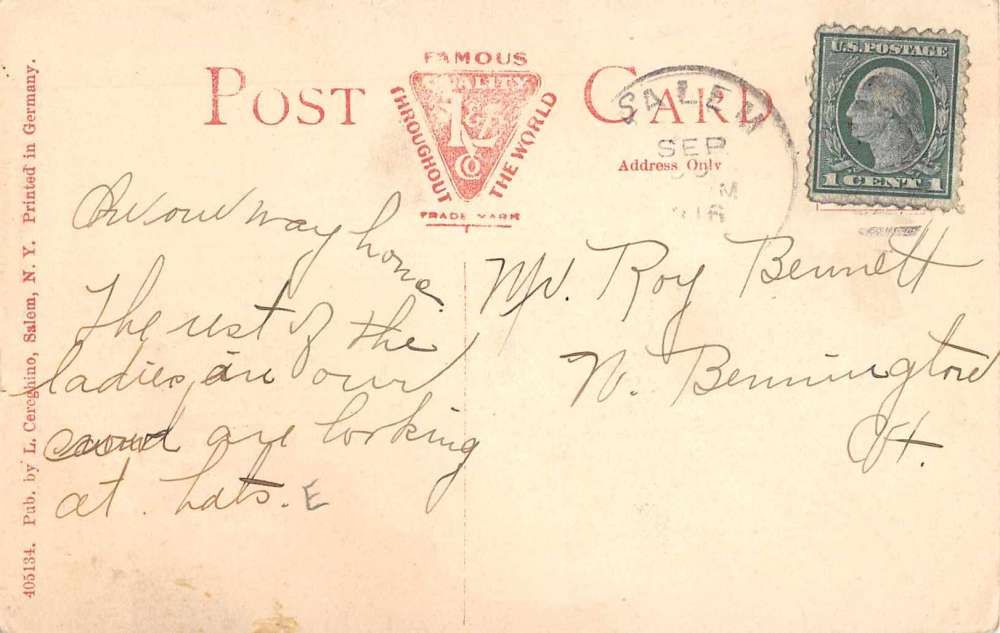 POST CARD
FAMOUS THROUGHOUT THE WORLD
QUALITY
Co
TRADE MARK
Address Only
SALEM
SEP
M
U.S. POSTAGE
1 CENT 1
On our way home.
The rest of the
ladies in our
crowd are looking
at hats. E
Mr. Roy Bennett
N. Bennington
Vt.
405134. Pub. by L. Cereghino, Salem, N. Y. Printed in Germany.